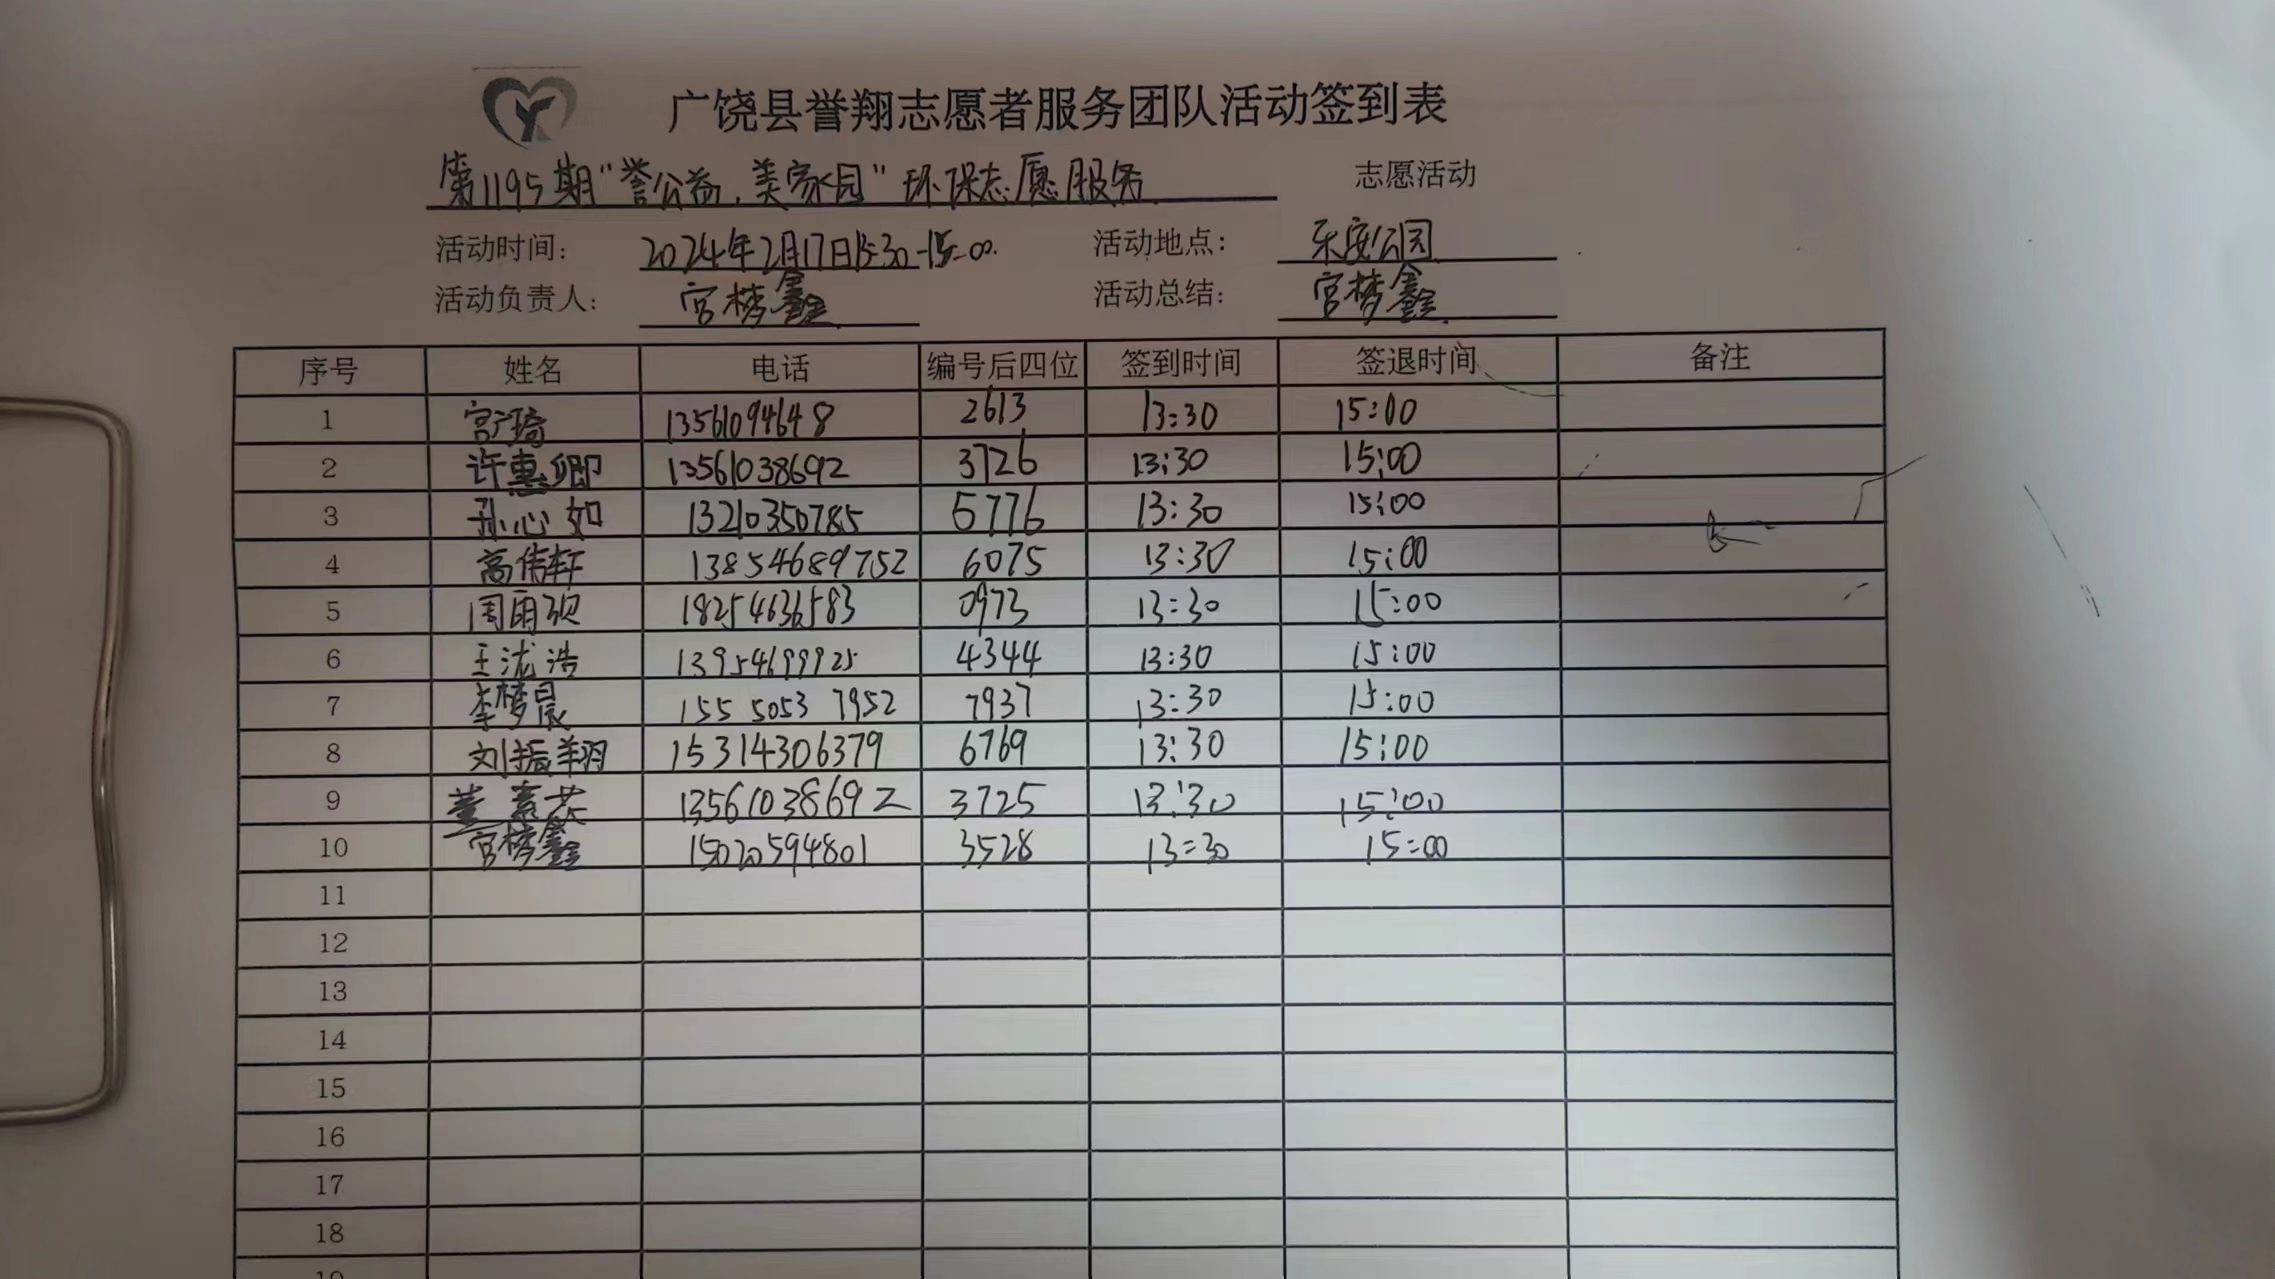 广饶县誉翔志愿者服务团队活动签到表
第1195期"誉公益，美家园"环保志愿服务 志愿活动
活动时间： 2024年2月17日13:30-15:00 活动地点： 乐安公园
活动负责人： 宫梦鑫 活动总结： 宫梦鑫
序号 姓名 电话 编号后四位 签到时间 签退时间 备注
1 宫广琦 13561094648 2613 13:30 15:00
2 许惠卿 13561038692 3726 13:30 15:00
3 孙心如 13210350785 5776 13:30 15:00
4 高伟轩 13854689752 6075 13:30 15:00
5 周雨 18254636583 0973 13:30 15:00
6 王浩 13954699925 4344 13:30 15:00
7 李梦晨 155 5053 7952 7937 13:30 15:00
8 刘振翔 15314306379 6769 13:30 15:00
9 素 13561038692 3725 13:30 15:00
10 宫梦鑫 15020594801 3528 13:30 15:00
11
12
13
14
15
16
17
18